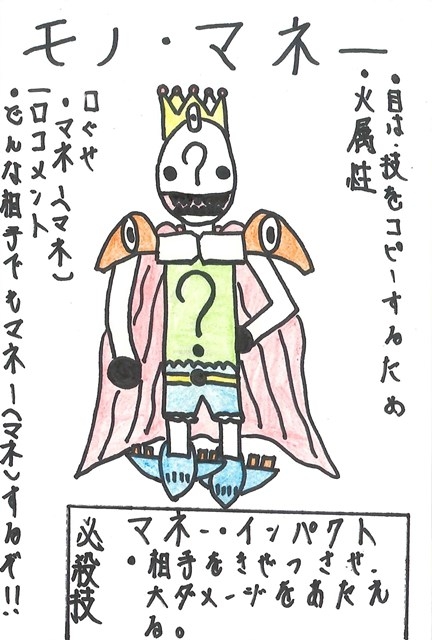 モノ・マネー
・目は、技をコピーするため
・火属性
口ぐせ
・マネー(マネ)
一口コメント
・どんな相手でもマネー(マネ)するぞ!!
必殺技
マネー・インパクト
・相手をきぜつさせ、
大ダメージをあたえ
る。